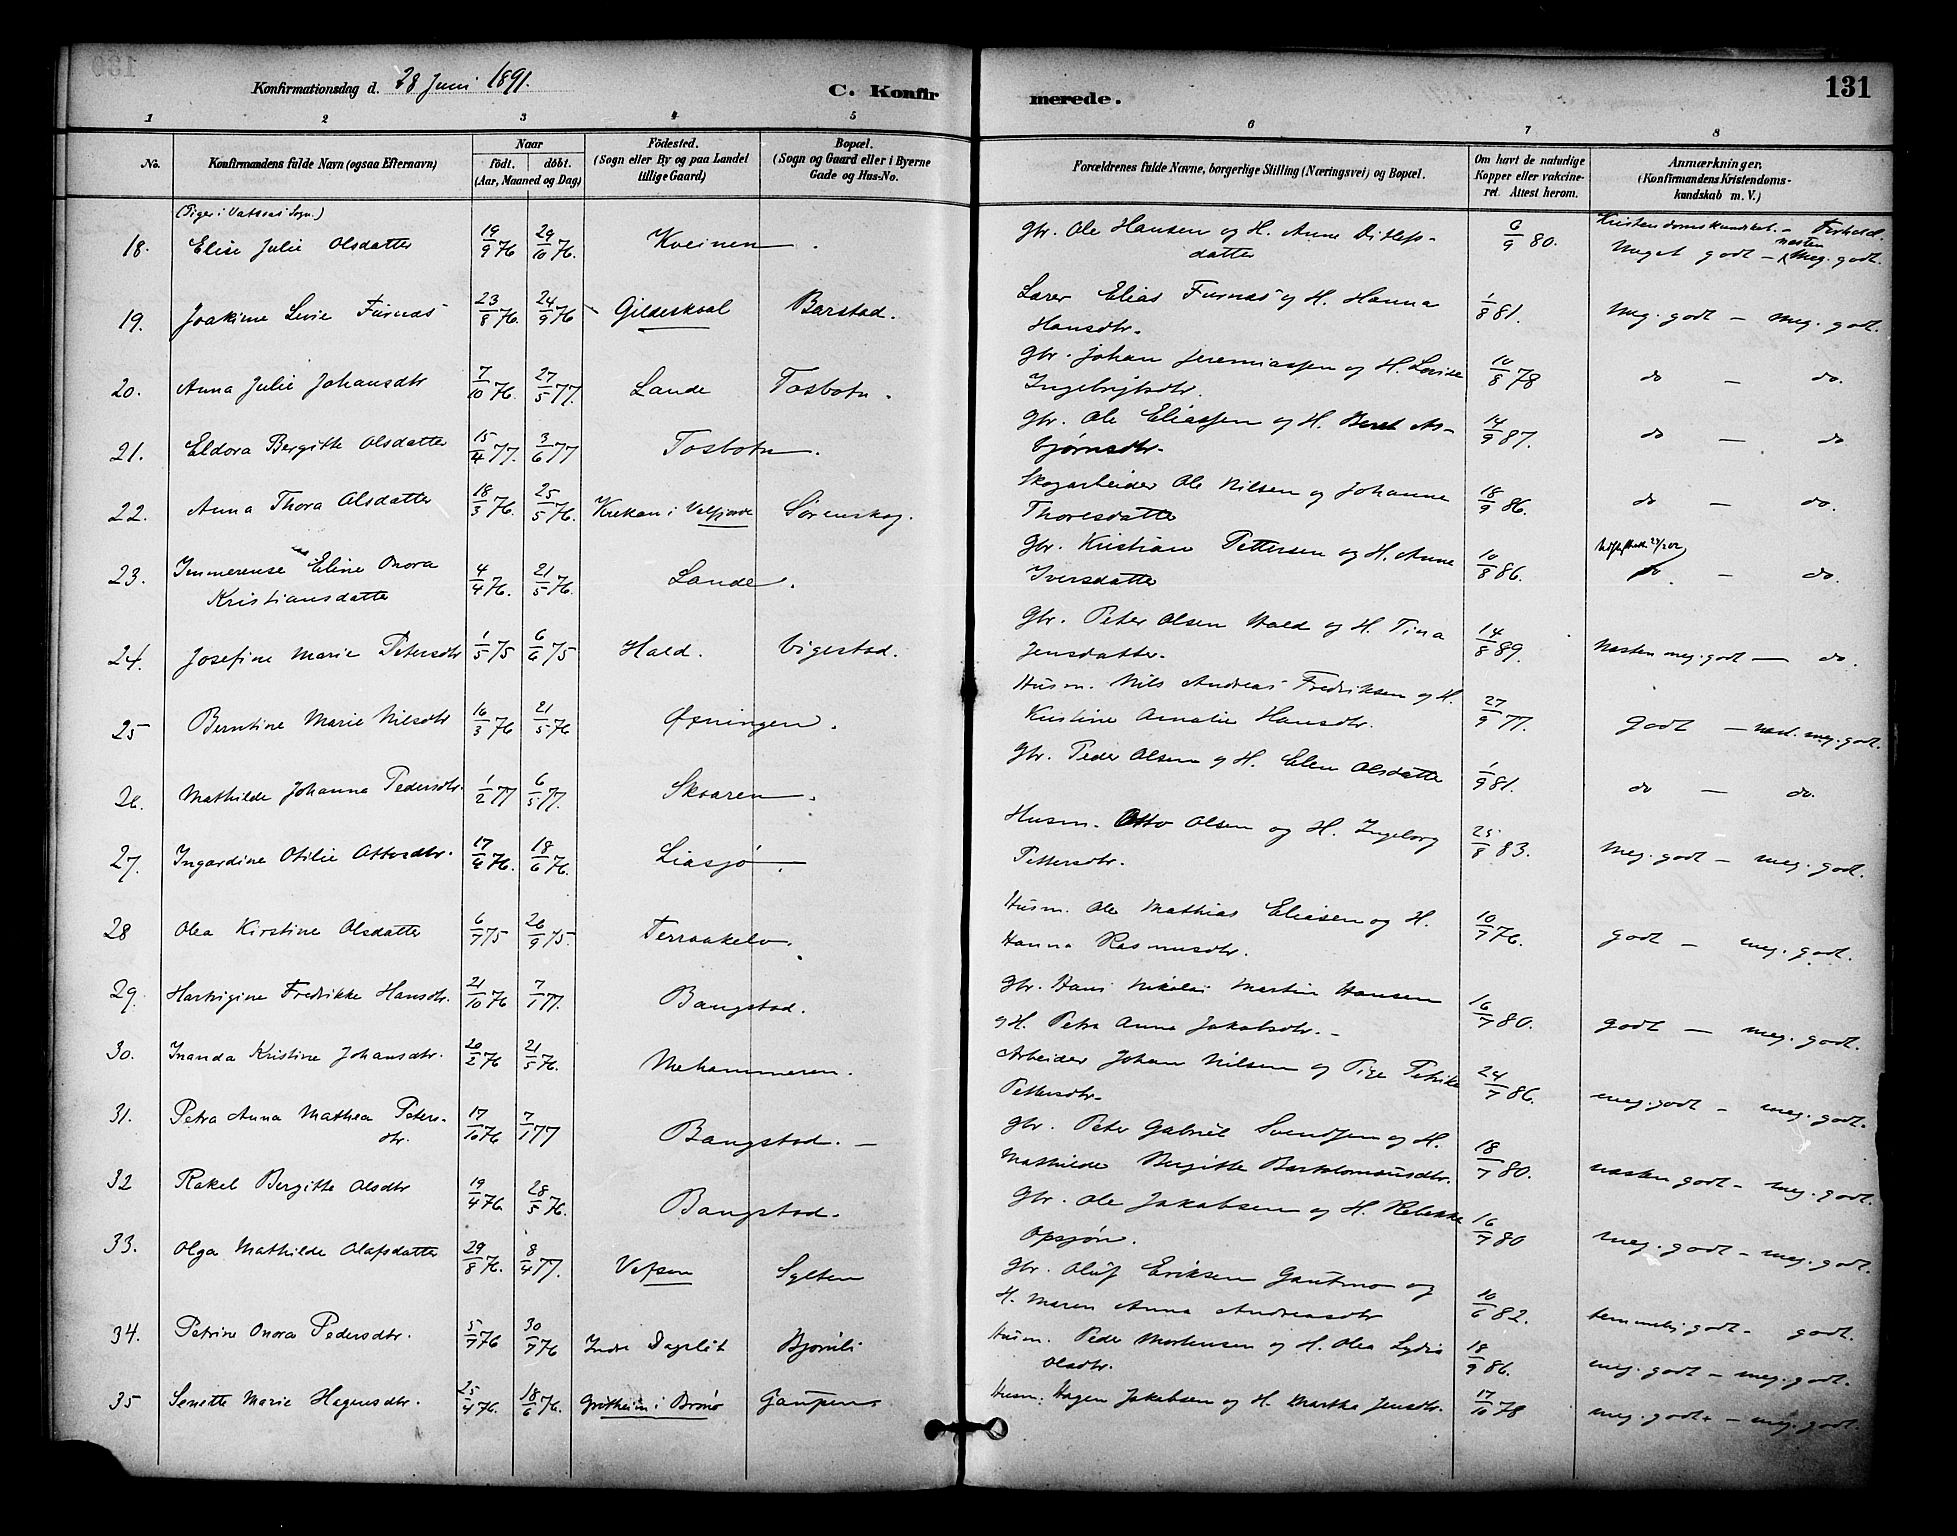 Konfirmationsdag d. 28 Juni 1891.
C. Konfirmerede.
131
1 2 3 4 5 6 7 8
No.
Konfirmandens fulde Navn (ogsaa Efternavn)
Naar
født. døbt.
(Aar, Maaned og Dag)
Födested.
(Sogn eller By og paa Landet
tillige Gaard)
Bopæl.
(Sogn og Gaard eller i Byerne
Gade og Hus-No.
Forældrenes fulde Navne, borgerlige Stilling (Næringsvei) og Bopæl.
Om havt de naturlige
Kopper eller vakcine-
ret. Attest herom.
Anmærkninger.
(Konfirmandens Kristendoms-
kundskab m. V.)
(Piger i Vatsaas Sogn.)
Kristendomskundskab. – Forhold.
18. Elise Julie Olsdatter 19/9 76 29/10 76. Kveinen. Gbr. Ole Hansen og H. Anne Ditlefs-
datter 6/9 80. Meget godt – næsten Meg. godt.
19. Joakime Levie Furnæs 23/8 76. 24/9 76 Gildeskaal Barstad. Lærer Elias Furnæs og H. Hanna
Hansdtr. 1/8 81. Meg. godt – meg. godt.
20. Anna Julie Johansdtr 7/10 76. 27/5 77. Lande Tosbotn. Gbr. Johan Jeremiassen og H. Lovise
Ingebrigtsdtr. 10/8 78 do – do.
21. Eldora Bergitte Olsdatter 15/4 77. 3/6 77 Tosbotn. Gbr. Ole Eliassen og H. Beret As-
bjørnsdtr. 14/9 87. do – do
22. Anna Thora Olsdatter 18/3 76. 25/5 76. Krekan i Velfjord Sørenskog. Skogarbeider Ole Nilsen og Johanna
Thoresdatter 18/9 86. do – do.
23. Immerense Eline Onora
Kristiansdatter 4/4 76. 21/5 76. Lande. Gbr. Kristian Pettersen og H. Anne
Iversdatter 10/8 86. do. – do.
24. Josefine Marie Petersdtr 1/5 75 6/6 75 Hald. Vigestad. Gbr. Peter Olsen Hald og H. Tina
Jensdatter. 14/8 89. Næsten meg. godt – do.
25 Berntine Marie Nilsdtr 16/3 76 21/5 76 Øxningen. Husm. Nils Andreas Fredriksen og H.
Kristine Amalie Hansdtr. 27/9 77. godt – næst. meg. godt.
26. Mathilde Johanna Pedersdtr. 1/2 77 6/5 77. Skaaren. Gbr. Peder Olsen og H. Elen Olsdatter 1/9 81. do – do.
27. Ingardine Otilie Ottosdtr. 17/4 76. 18/6 76. Liasjø. Husm. Otto Olsen og H. Ingeborg
Pettersdtr. 25/8 83. Meg. godt – meg. godt.
28 Olea Kirstine Olsdatter 6/7 75 26/9 75. Terraakelv. Husm. Ole Mathias Eliasen og H.
Hanna Rasmusdtr. 10/7 76. godt – meg. godt.
29. Hartvigine Fredrikke Hansdtr. 21/10 76 7/1 77. Bangstad. Gbr. Hans Nikolai Martin Hansen
og H. Petra Anna Jakobsdtr. – 16/7 80. godt – meg. godt.
30. Inanda Kristine Johansdtr. 20/2 76 21/5 76. Mehammeren. Arbeider Johan Nilsen og Pige Petrike
Pettersdtr. 24/7 86. meg. godt – meg. godt.
31. Petra Anna Mathea Peters-
dtr. 17/10 76 7/1 77 Bangstad. – Gbr. Peter Gabriel Svendsen og H.
Mathilde Bergitte Bartolomæusdtr. 18/7 80. næsten godt – meg. godt.
32 Rakel Bergitte Olsdtr 19/4 76. 28/5 76. Bangstad. Gbr. Ole Jakobsen og H. Rebekka
Opsjøn. 16/7 80 meg. godt – meg. godt.
33. Olga Mathilde Olafsdatter 29/8 76. 8/4 77. Vefsen Sylten Gbr. Oluf Eriksen Gautmo og
H. Maren Anna Andreasdtr 10/6 82. temmelig godt – godt.
34. Petrine Onora Pedersdtr. 5/7 76 30/7 76 Indre Bjørnli Husm. Peder Mortensen og H. Olea Lydia
Olsdtr. 18/9 86. meg. godt – meg. godt.
35 Senette Marie Hagensdtr. 25/4 76. 18/6 76. Grøtheim i Brønø Gaupen Husm. Hagen Jakobsen og H. Martha Jensdtr. 17/10 78 meg. godt – meg. godt.